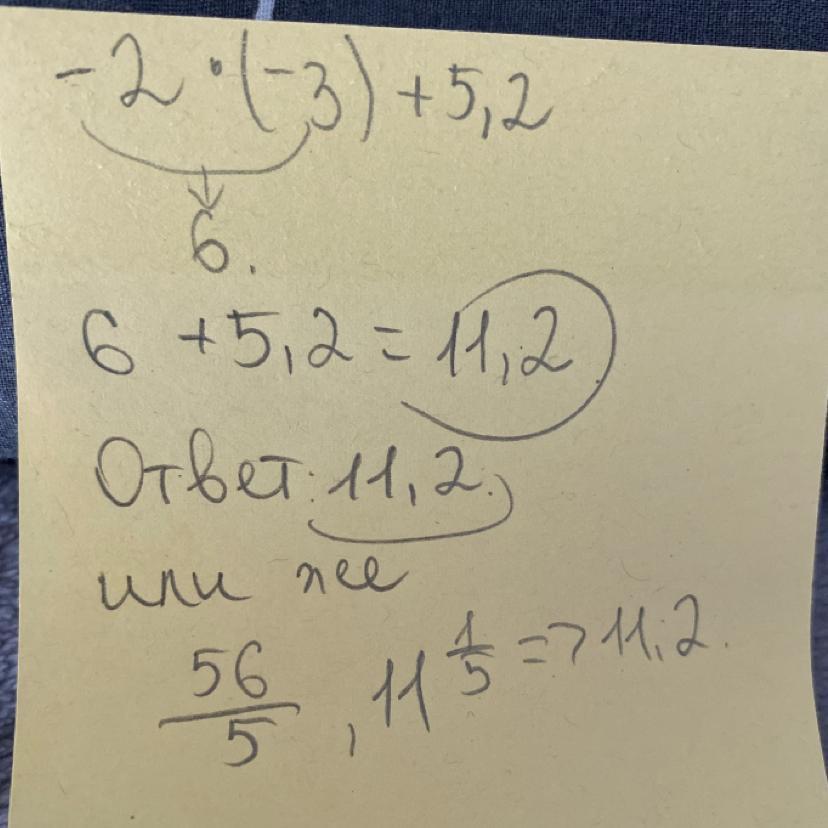 -2 · (-3) + 5,2
6.
6 + 5,2 = 11,2
Ответ: 11,2.
или же
56/5, 11 1/5 => 11,2.